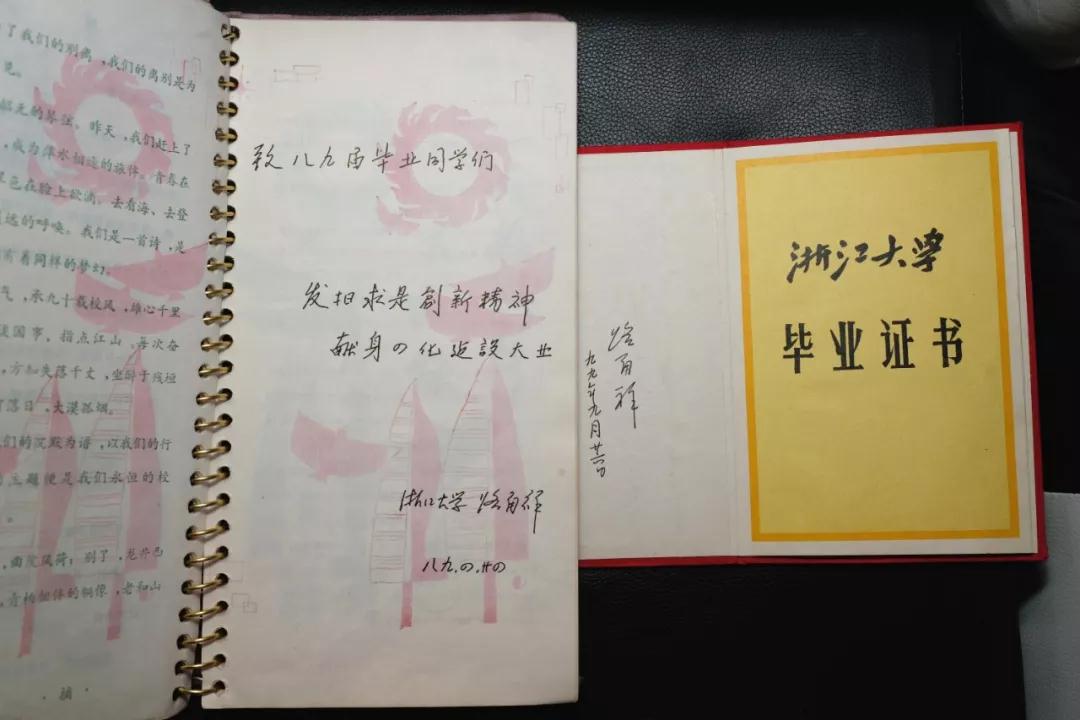 了我们的别离，我们的离别是为
觅。
韶无的琴弦。昨天，我们赶上了
，成为萍水相逢的旅伴。青春在
色在脸上欲滴。去看海、去登
远的呼唤。我们是一首诗，是
有着同样的梦幻。
气，承九十载校风，雄心千里
谈国事，指点江山。每次奋
，方知失落千丈，坐醉于残垣
落日，大漠孤烟。
们的沉默为谱，以我们的行
主题便是我们永恒的校
，曲院风荷；别了，龙井
的铜像，老和山
·摘·
致八九届毕业同学们
发扬求是創新精神
献身四化建設大业
浙江大学 路甬祥
八九.四.廿四
路甬祥
九九年九月廿六日
浙江大学
毕业证书